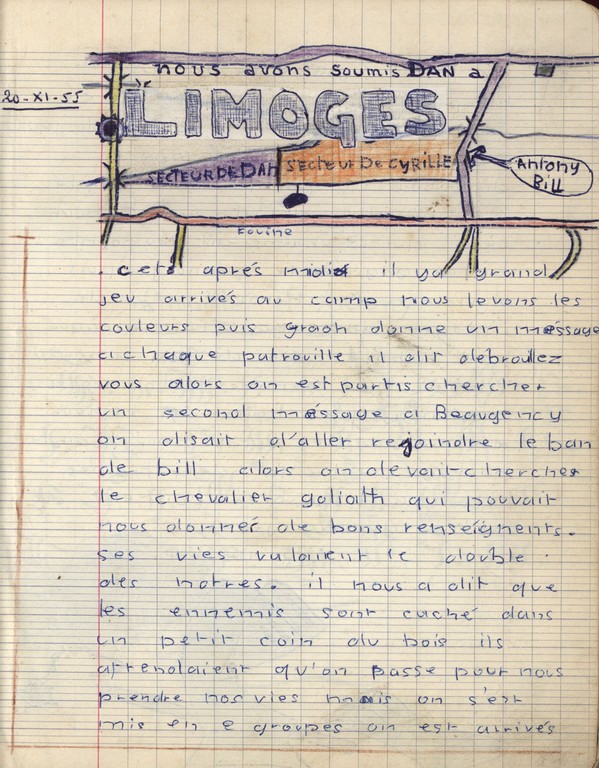 nous avons soumis DAN a
20-XI-55
LIMOGES
SECTEUR DE DAN
SECTEUR DE CYRILLE
Antony
Bill
cets aprés midi il ya grand
jeu arrivés au camp nous levons les
couleurs puis graoh donne un méssage
a chaque patrouille il dit debroullez
vous alors on est partis chercher
un second méssage a Beaugency
on disait d'aller rejoindre le ban
de bill alors on devait chercher
le chevalier goliath qui pouvait
nous donner de bons renseignents.
ses vies valaient le double
des notres. il nous a dit que
les ennemis sont caché dans
un petit coin du bois ils
attendaient qu'on passe pour nous
prendre nos vies mais on s'est
mis en 2 groupes on est arrivés